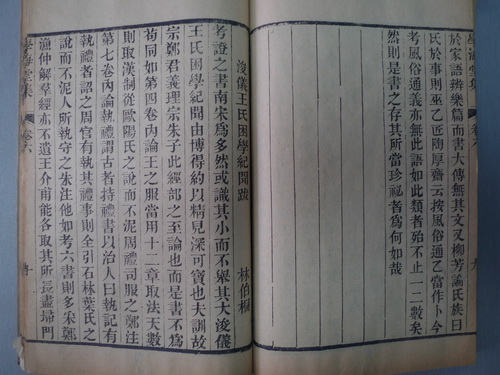 學海堂集
於家語辨樂篇而書大傳無其文又柳芳論氏族曰
氏於事則巫乙匠陶厚齋云按風俗通乙當作卜今
考風俗通義亦無此語凡如此類者殆不止一二數矣
然則是書之存其所當珍視者為何如哉
浚儀王氏困學紀聞跋
林伯桐
考證之書南宋為多然或識其小而不舉其大浚儀
王氏困學紀聞由博得約以精見深可寶也夫訓故
宗鄭君義理宗朱子此經部之至論也而是書不為
苟同如第四卷內論王之服當用十二章取法天數
則取漢制從歐陽氏之說而不泥周禮司服之鄭注
第七卷內論執禮謂古者持禮書以治人曰執記有
執禮者詔之周官有執其禮事則全引石林葉氏之
說而不泥人所執守之朱注他如考六書則多采鄭
漁仲解羣經亦不遺王介甫能各取其所長盡埽門
學海堂集 卷六